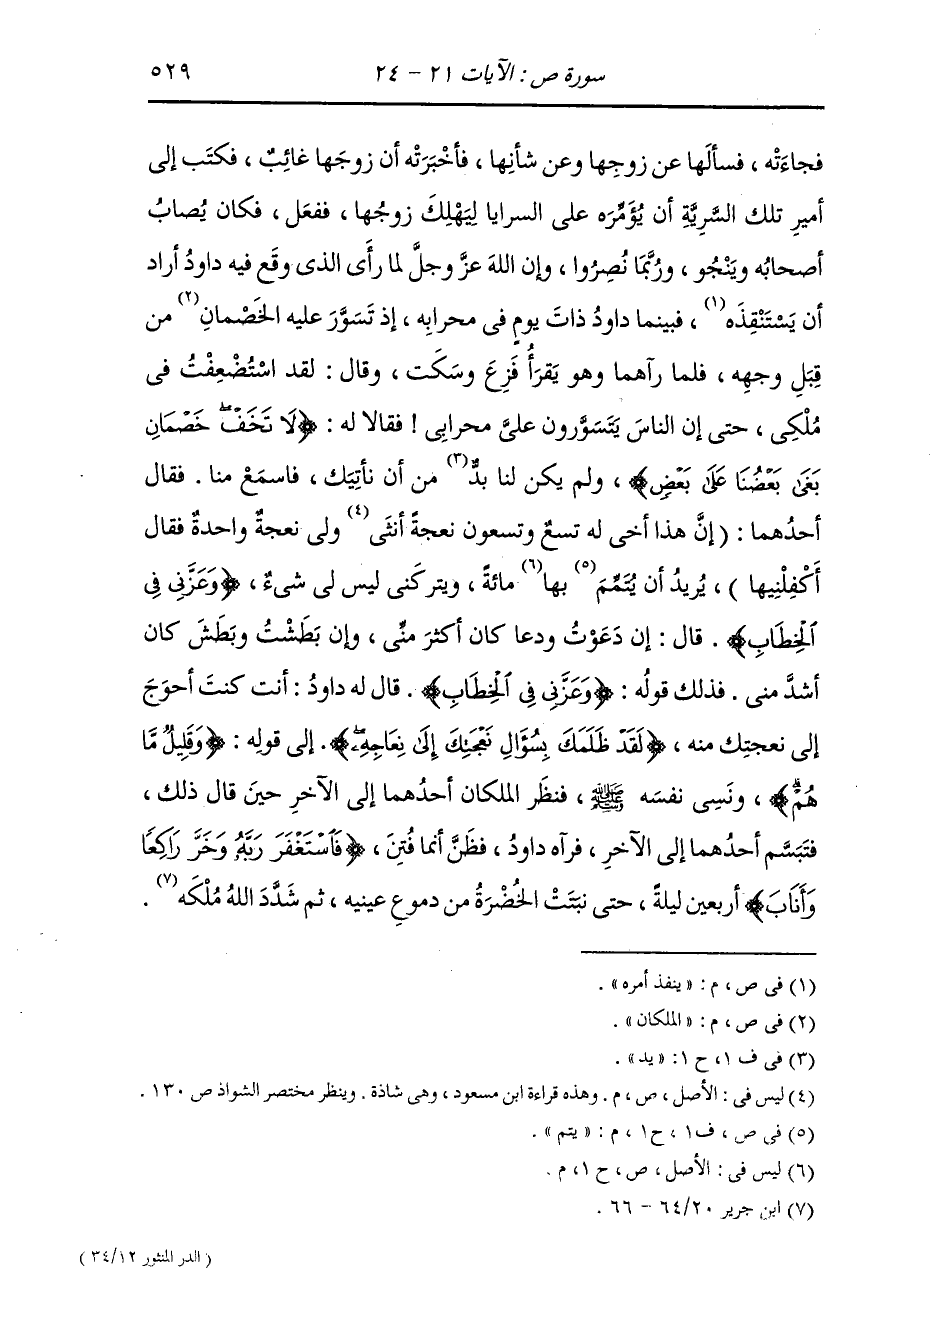 سورة ص : الآيات ٢١ - ٢٤ ٥٢٩
فجاءَتْه ، فسألَها عن زوجِها وعن شأنِها ، فأخْبَرَتْه أن زوجَها غائِبٌ ، فكتَب إلى
أميرِ تلك السَّرِيَّةِ أن يُؤَمِّرَه على السرايا لِيَهْلِكَ زوجُها ، ففعَل ، فكان يُصابُ
أصحابُه ويَنْجُو ، ورُبَّمَا نُصِرُوا ، وإن اللهَ عزَّ وجلَّ لما رأَى الذى وقَع فيه داودُ أراد
أن يَسْتَنْقِذَه(١) ، فبينما داودُ ذاتَ يومٍ فى محرابِه ، إذ تَسَوَّرَ عليه الخَصْمانِ(٢) من
قِبَلِ وجهِه ، فلما رآهما وهو يَقرَأُ فَزِعَ وسَكَت ، وقال : لقد اسْتُضْعِفْتُ فى
مُلْكِى ، حتى إن الناسَ يَتَسَوَّرون علىَّ محرابِى ! فقالا له : ﴿لَا تَخَفْۖ خَصْمَانِ
بَغَىٰ بَعْضُنَا عَلَىٰ بَعْضٍ﴾ ، ولم يكن لنا بدٌّ(٣) من أن نأتِيَك ، فاسمَعْ منا . فقال
أحدُهما : ( إنَّ هذا أخى له تسعٌ وتسعون نعجةً أنثَى(٤) ولى نعجةٌ واحدةٌ فقال
أَكْفِلْنِيها ) ، يُرِيدُ أن يُتَمِّمَ(٥) بها(٦) مائةً ، ويتركَنى ليس لى شىءٌ ، ﴿وَعَزَّنِى فِى
ٱلْخِطَابِ﴾ . قال : إن دَعَوْتُ ودعا كان أكثرَ منِّى ، وإن بَطَشْتُ وبَطَش كان
أشدَّ منى . فذلك قولُه : ﴿وَعَزَّنِى فِى ٱلْخِطَابِ﴾ . قال له داودُ : أنت كنتَ أحوَجَ
إلى نعجتِك منه ، ﴿لَقَدْ ظَلَمَكَ بِسُؤَالِ نَعْجَتِكَ إِلَىٰ نِعَاجِهِۦۖ﴾ . إلى قولِه : ﴿وَقَلِيلٌ مَّا
هُمْۗ﴾ ، ونَسِى نفسَه ﷺ ، فنظَر الملكان أحدُهما إلى الآخرِ حينَ قال ذلك ،
فتَبَسَّم أحدُهما إلى الآخرِ ، فرآه داودُ ، فظَنَّ أنما فُتِن ، ﴿فَٱسْتَغْفَرَ رَبَّهُۥ وَخَرَّ رَاكِعًا
وَأَنَابَ﴾ أربعين ليلةً ، حتى نبَتَتْ الخُضْرَةُ من دموعِ عينيه ، ثم شَدَّدَ اللهُ مُلْكَه(٧) .
(١) فى ص ، م : « ينفذ أمره » .
(٢) فى ص ، م : « الملكان » .
(٣) فى ف ١، ح ١ : « يد » .
(٤) ليس فى : الأصل ، ص ، م . وهذه قراءة ابن مسعود ، وهى شاذة . وينظر مختصر الشواذ ص ١٣٠ .
(٥) فى ص ، ف١ ، ح١ ، م : « يتم » .
(٦) ليس فى : الأصل ، ص ، ح ١، م .
(٧) ابن جرير ٢٠/ ٦٤ - ٦٦ .
( الدر المنثور ١٢/ ٣٤ )